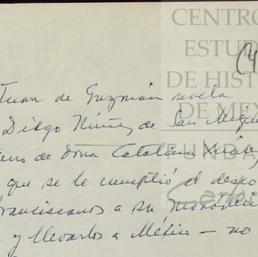 CENTRO
ESTU
DE HIST
DE ME
FUNDA
Juan de Guzmán revela
Diego Núñez de San Miguel
de doña Catalina
que se le cumplió el deseo
franciscanos a su monasterio
y llevarlos a Méjico — no